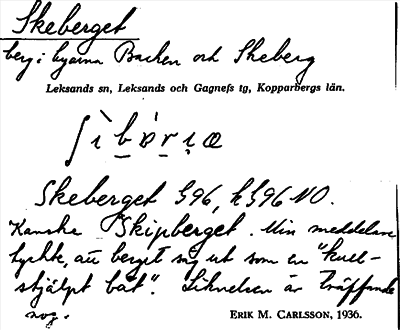 Skeberget
berg i byarna Backen och Skeberg
Leksands sn, Leksands och Gagnefs tg, Kopparbergs län.
Skeberget 396, h 396 NO.
Kanske "Skipberget. Min meddelare
tyckte, att berget såg ut som en "kull-
stjälpt båt". Liknelsen är träffande
nog.
ERIK M. CARLSSON, 1936.